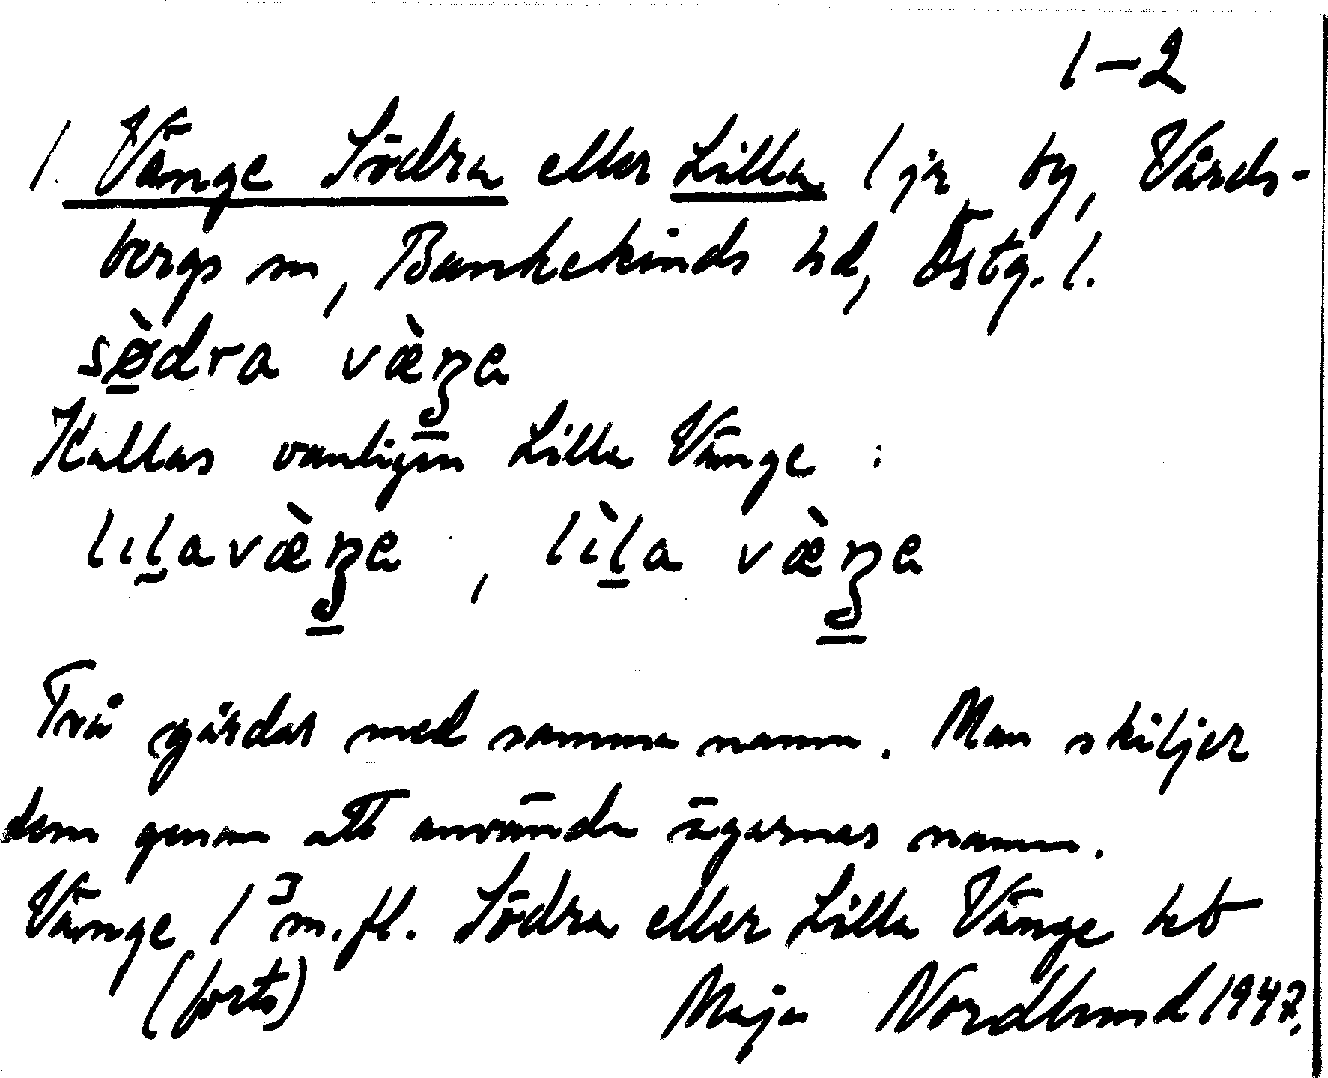 1-2
1. Vänge Södra eller Lilla 1 jr by, Vårds-
bergs sn, Bankekinds hd, Östg. l.
sø̀dra væ̀ŋe
Kallas vanligen Lilla Vänge :
lilavæ̀ŋe , lìla væ̀ŋe
Två gårdar med samma namn. Man skiljer
dem genom att använda ägarnas namn.
Vänge 1³ m.fl. Södra eller Lilla Vänge kb
(forts) Maja Nordlund 1947.